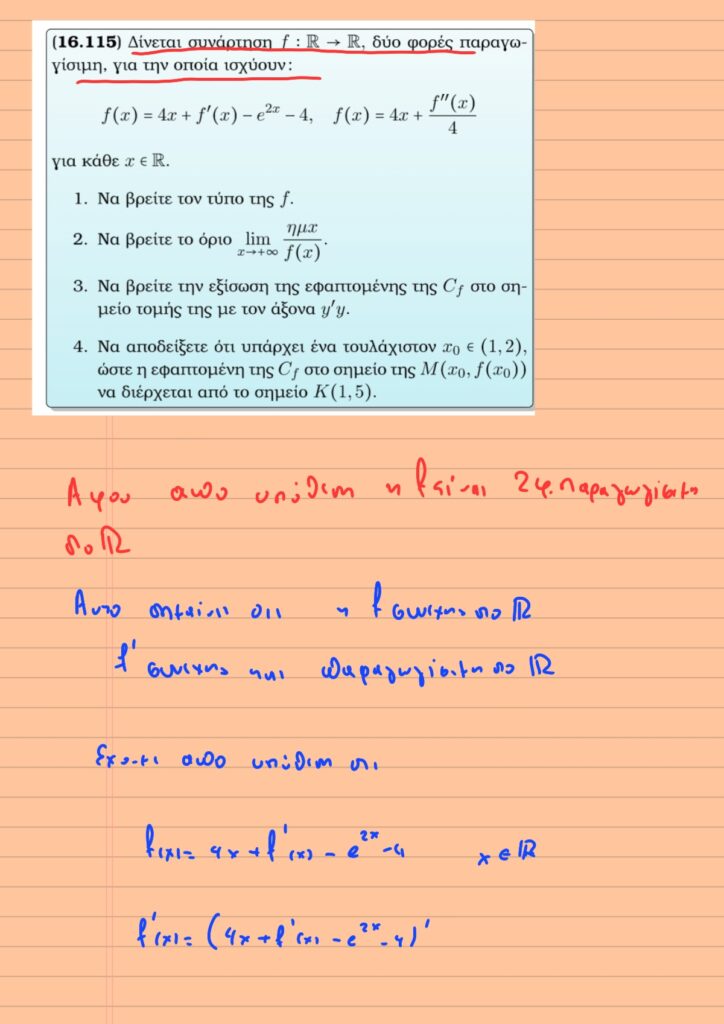 (16.115) Δίνεται συνάρτηση f : ℝ → ℝ, δύο φορές παραγω-
γίσιμη, για την οποία ισχύουν:
f(x) = 4x + f′(x) − e^{2x} − 4, f(x) = 4x + f″(x)/4
για κάθε x ∈ ℝ.
1. Να βρείτε τον τύπο της f.
2. Να βρείτε το όριο lim_{x→+∞} ημx/f(x).
3. Να βρείτε την εξίσωση της εφαπτομένης της C_f στο ση-
μείο τομής της με τον άξονα y′y.
4. Να αποδείξετε ότι υπάρχει ένα τουλάχιστον x₀ ∈ (1,2),
ώστε η εφαπτομένη της C_f στο σημείο της M(x₀, f(x₀))
να διέρχεται από το σημείο K(1,5).
Αφου απο υπόθεση η f είναι 2φ. παραγωγίσιμη
στο ℝ
Αυτο σημαίνει οτι η f συνεχης στο ℝ
f′ συνεχης και παραγωγίσιμη στο ℝ
Εχουμε απο υπόθεση οτι
f(x) = 4x + f′(x) − e^{2x} − 4 x ∈ ℝ
f′(x) = (4x + f′(x) − e^{2x} − 4)′